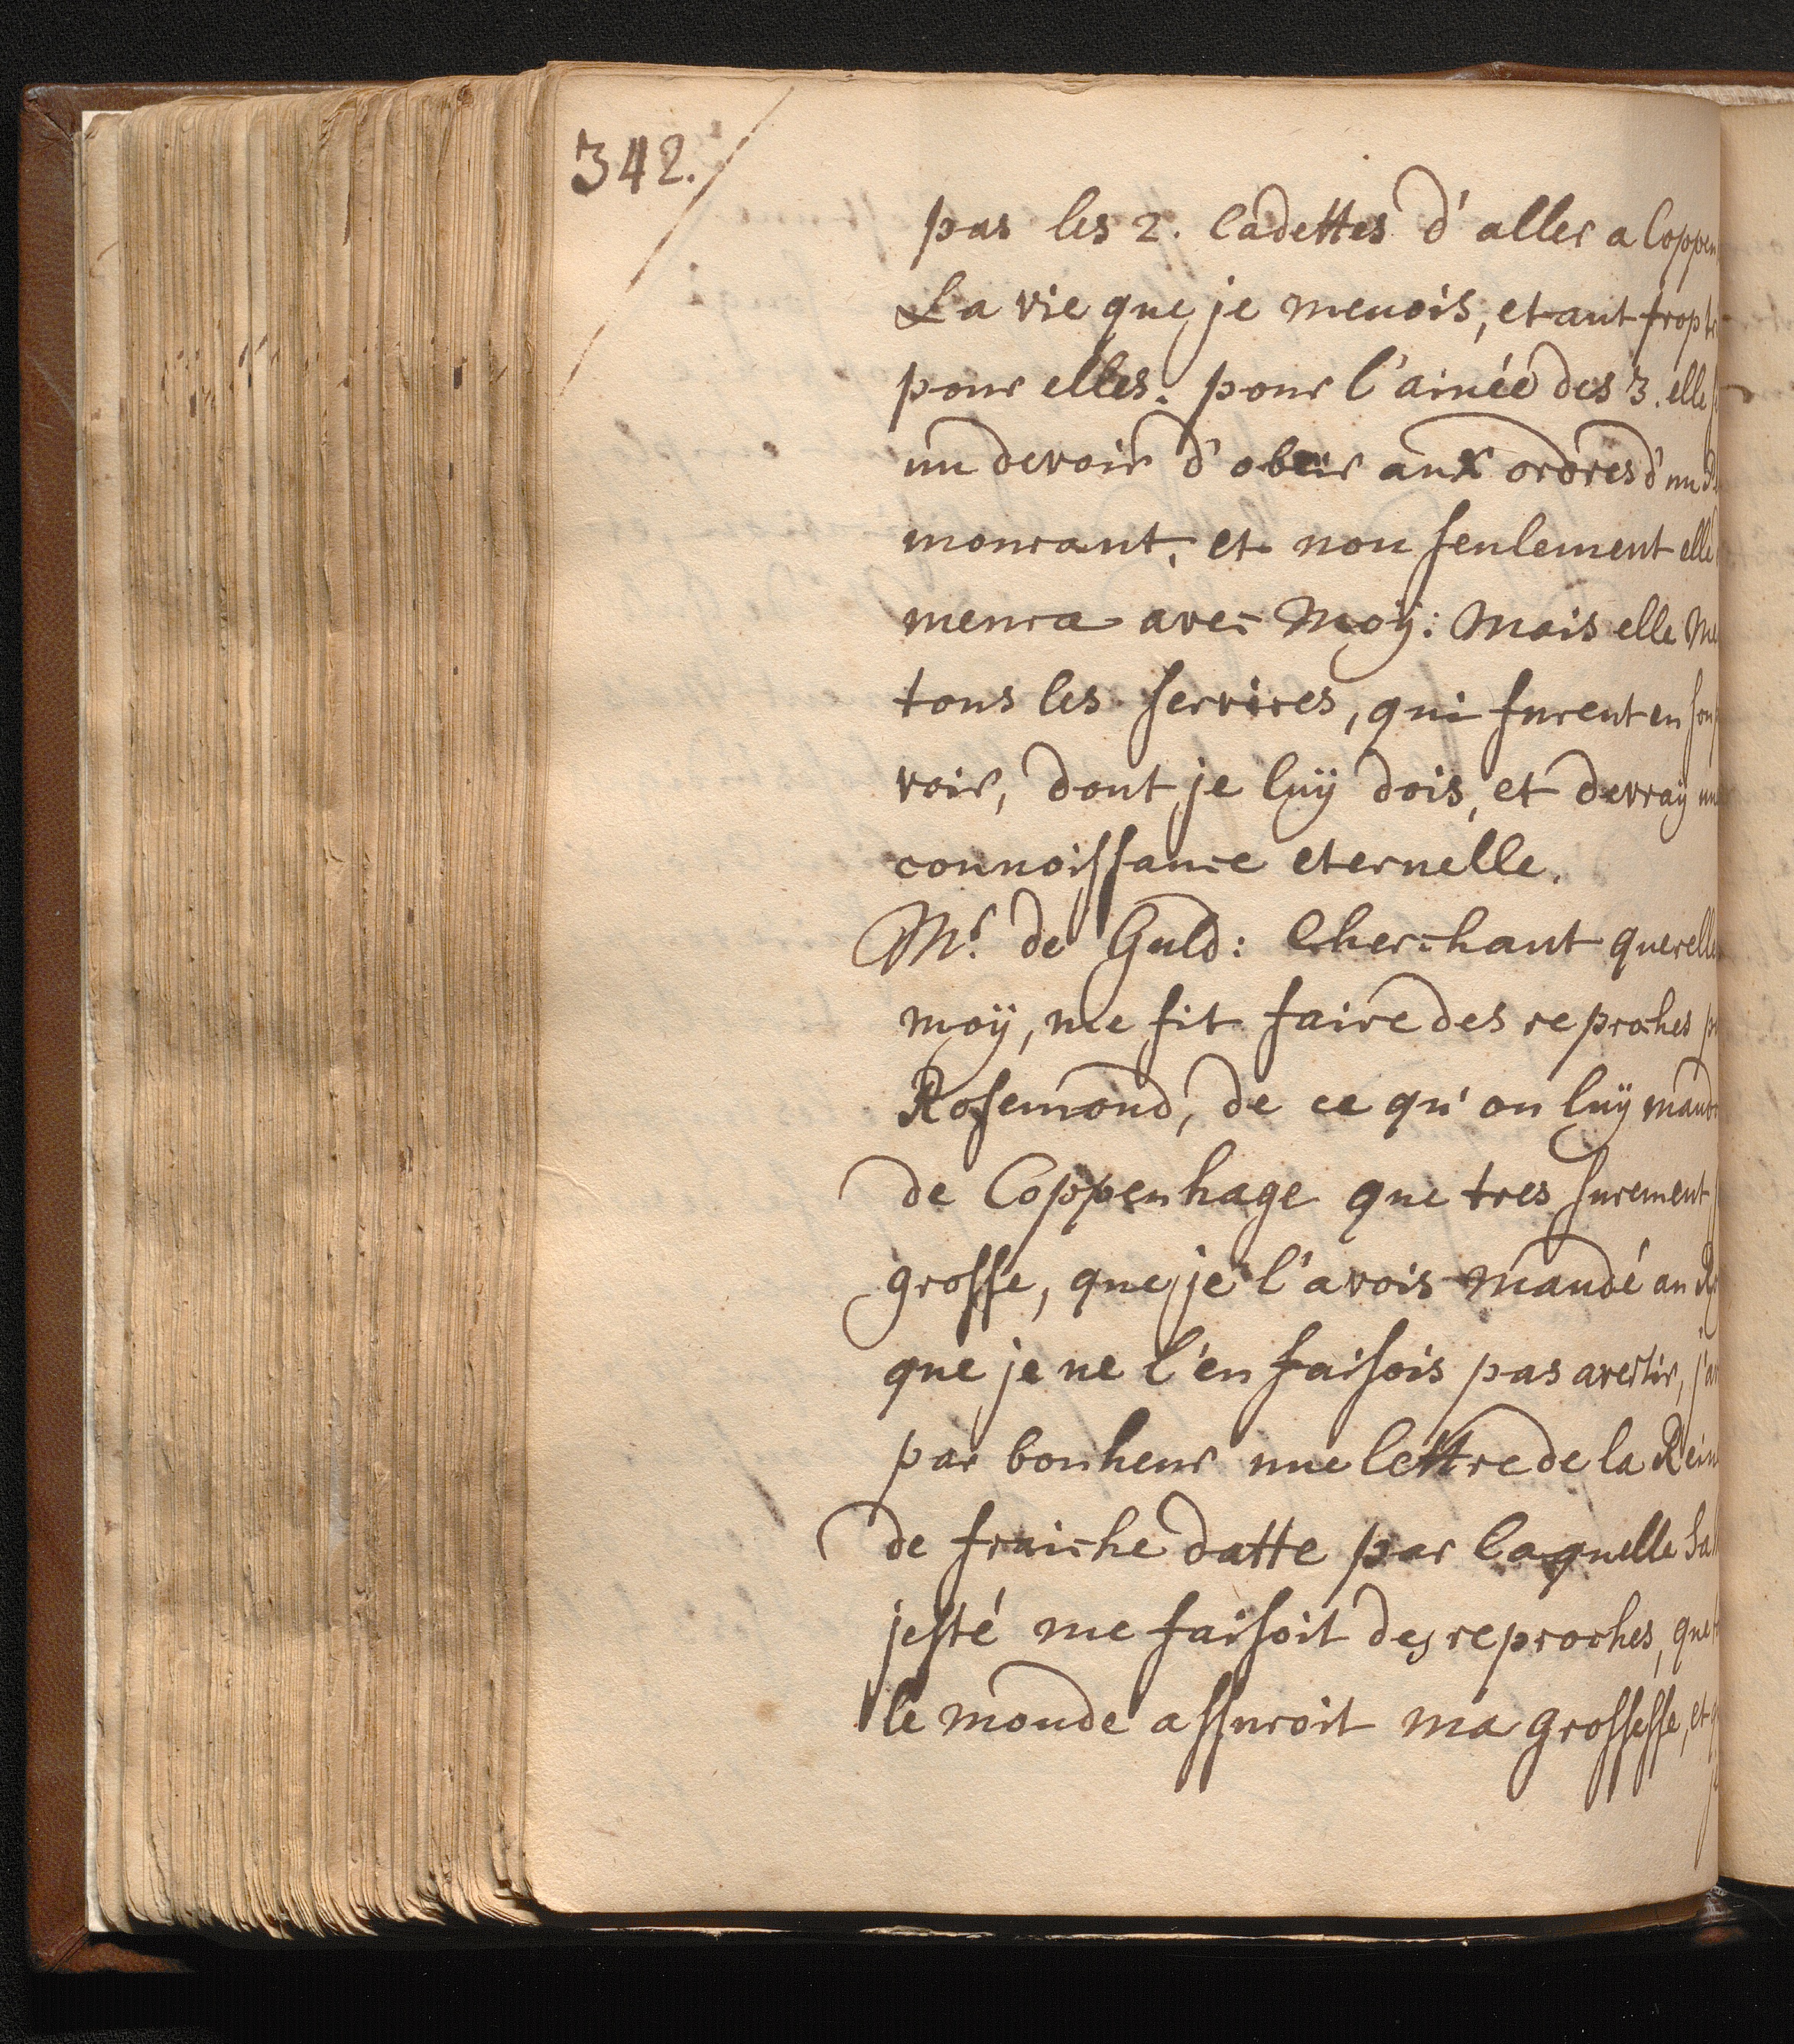 342.
pas les 2. Cadettes d'aller a Coppen
La vie que je menois, etant trop
pour elles. pour l'ainée des 3. elle
un devoir d'obeir aux ordres d'un
mourant, et non seulement elle
meura avec Moÿ: Mais elle Me
tous les services, qui furent en son
voir, dont je luÿ dois, et devraÿ une
connoissance eternelle.
Mr. de Guld: Cherchant querelle
moÿ, me fit faire des reproches
Rosemond, de ce qu'on luÿ mand
de Coppenhage que tres surement
grosse, que je l'avois mandé au
que je ne l'en faisois pas avertir, j'a
par bonheur une lettre de la Rein
de fraiche datte par laquelle Sa
jesté me faisoit des reproches, que
le monde assuroit ma grossesse, et